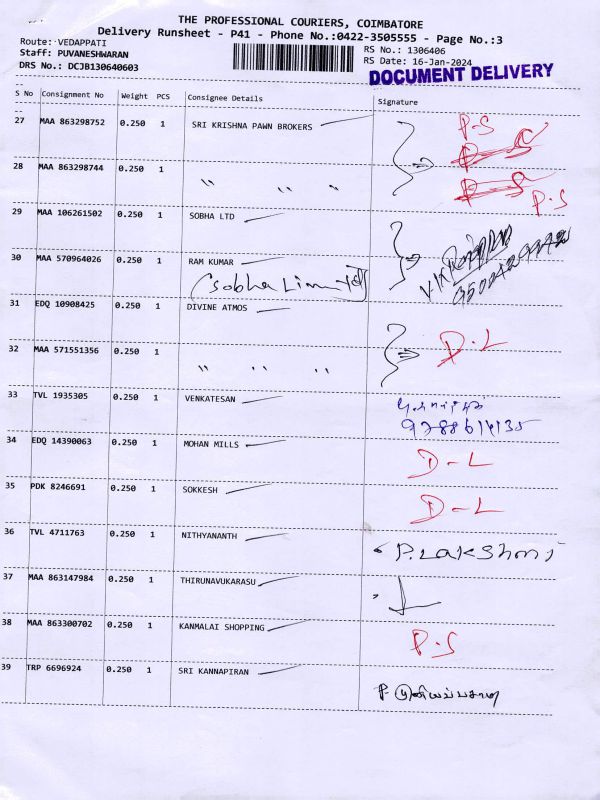 THE PROFESSIONAL COURIERS, COIMBATORE
Delivery Runsheet - P41 - Phone No.:0422-3505555 - Page No.:3
Route: VEDAPPATI
RS No.: 1306406
Staff: PUVANESHWARAN
RS Date: 16-Jan-2024
DRS No.: DCJB130640603
DOCUMENT DELIVERY
S No Consignment No Weight PCS Consignee Details Signature
27 MAA 863298752 0.250 1 SRI KRISHNA PAWN BROKERS P-S
28 MAA 863298744 0.250 1 " " " P.S
29 MAA 106261502 0.250 1 SOBHA LTD
30 MAA 570964026 0.250 1 RAM KUMAR
(Sobha Limited)
31 EDQ 10908425 0.250 1 DIVINE ATMOS D.L
32 MAA 571551356 0.250 1 " " "
33 TVL 1935305 0.250 1 VENKATESAN
34 EDQ 14390063 0.250 1 MOHAN MILLS D-L
35 PDK 8246691 0.250 1 SOKKESH D-L
36 TVL 4711763 0.250 1 NITHYANANTH P.Lakshmi
37 MAA 863147984 0.250 1 THIRUNAVUKARASU
38 MAA 863300702 0.250 1 KANMALAI SHOPPING P.S
39 TRP 6696924 0.250 1 SRI KANNAPIRAN